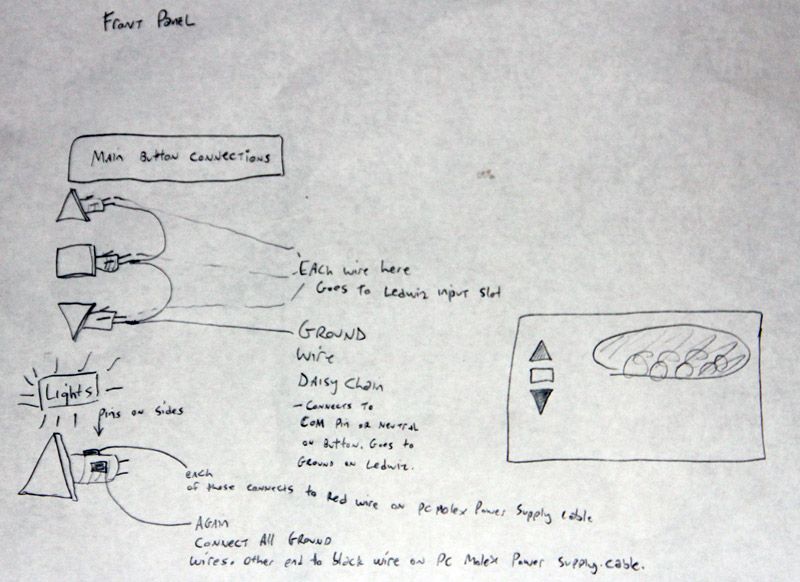 Front Panel
Main Button Connections
Each wire here
Goes to Ledwiz input slot
Ground
Wire
Daisy Chain
- Connects to
Com Pin or Neutral
on Button. Goes to
Ground on Ledwiz.
Lights
Pins on sides
each
of these connects to Red wire on PC Molex Power Supply cable
Again
Connect All Ground
wires. Other end to black wire on PC Molex Power Supply cable.